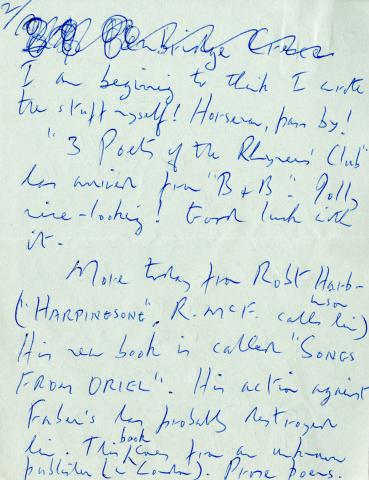 2/
Pembridge Cresc
I am beginning to think I wrote
the stuff myself! Horseman, pass by!
"3 Poets of the Rhymers' Club"
has arrived from "B & B". Jolly
nice-looking! Good luck with
it.
More today from Robt Harb-
inson
("HARPINESONE", R. McF. calls him)
His new book is called "SONGS
FROM ORIEL". His action against
Faber's has probably destroyed
him. This book comes from an unknown
publisher (in London). Prose poems.